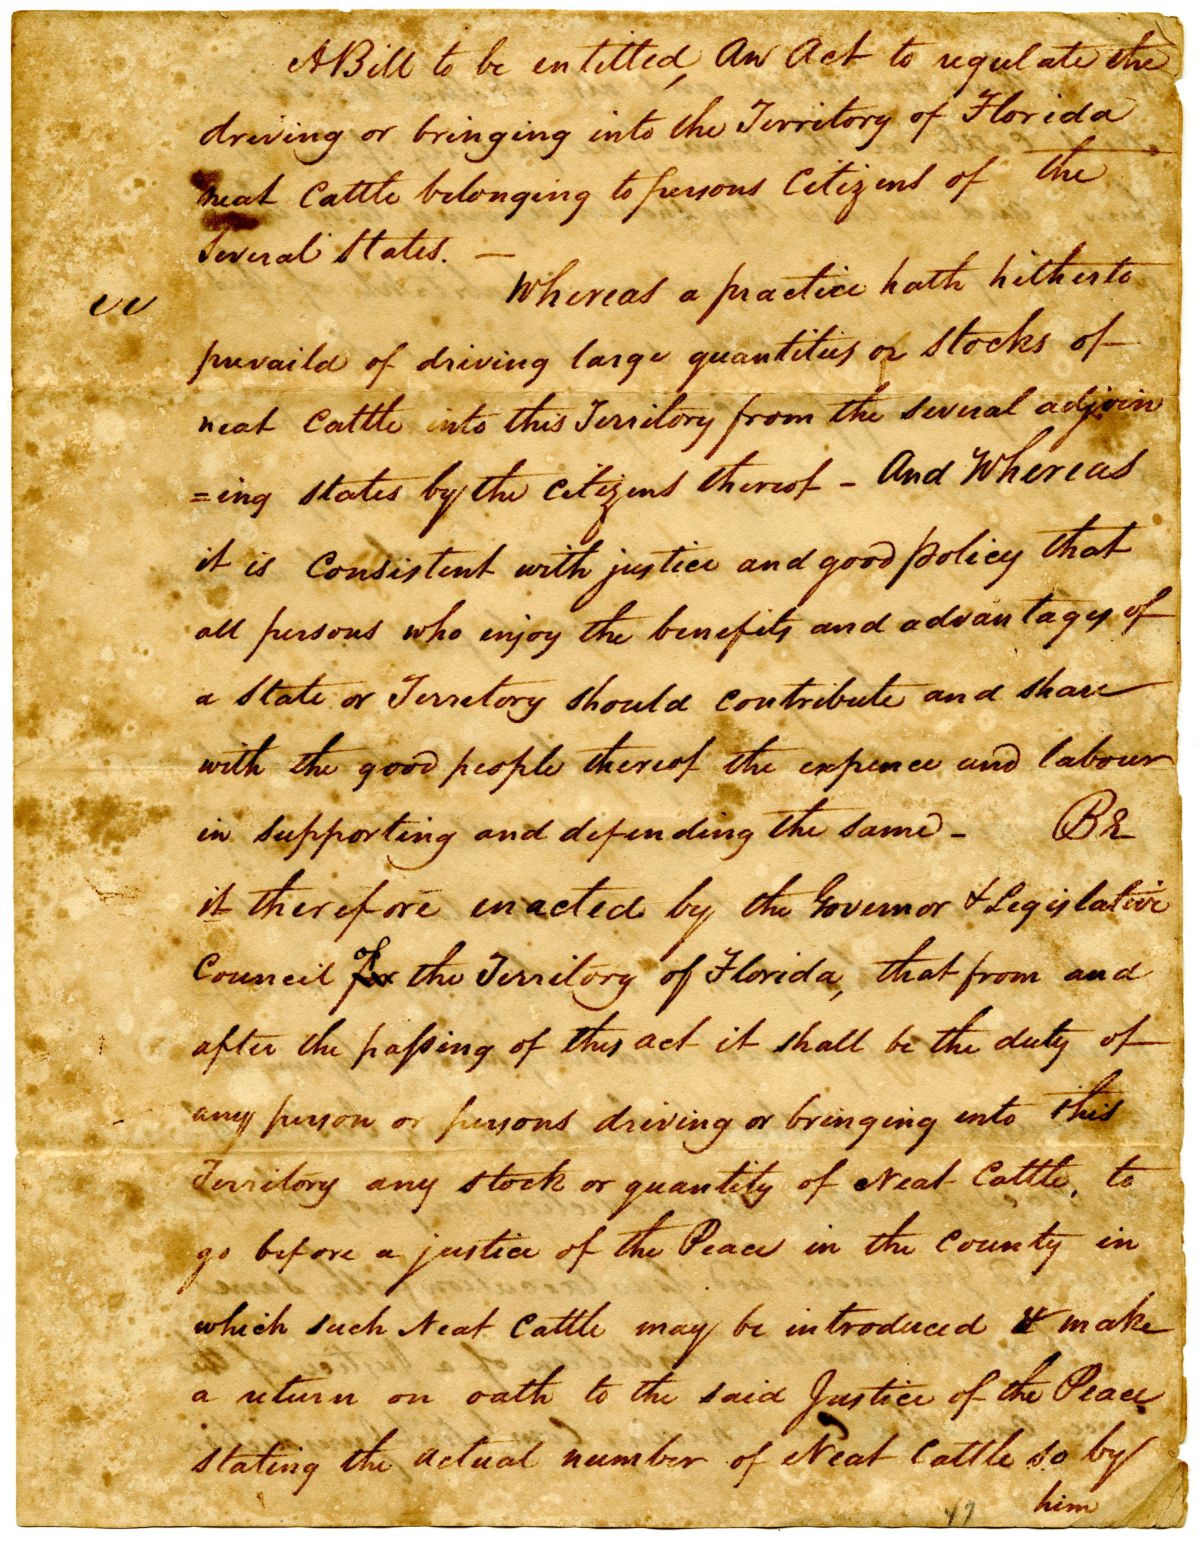 A Bill to be entitled, An Act to regulate the
driving or bringing into the Territory of Florida
neat Cattle belonging to persons Citizens of the
several States. —
Whereas a practice hath hitherto
prevaild of driving large quantities or stocks of
neat Cattle into this Territory from the several adjoin
=ing states by the Citizens thereof - And Whereas
it is Consistent with justice and good policy that
all persons who enjoy the benefits and advantages of
a State or Territory should contribute and share
with the good people thereof the expence and labour
in supporting and defending the same - Be
it therefore enacted by the Governor & Legislative
Council of the Territory of Florida, that from and
after the passing of this act it shall be the duty of
any person or persons driving or bringing into this
Territory any stock or quantity of Neat Cattle, to
go before a justice of the Peace in the County in
which such Neat Cattle may be introduced & make
a return on oath to the said Justice of the Peace
stating the actual number of Neat Cattle so by
him